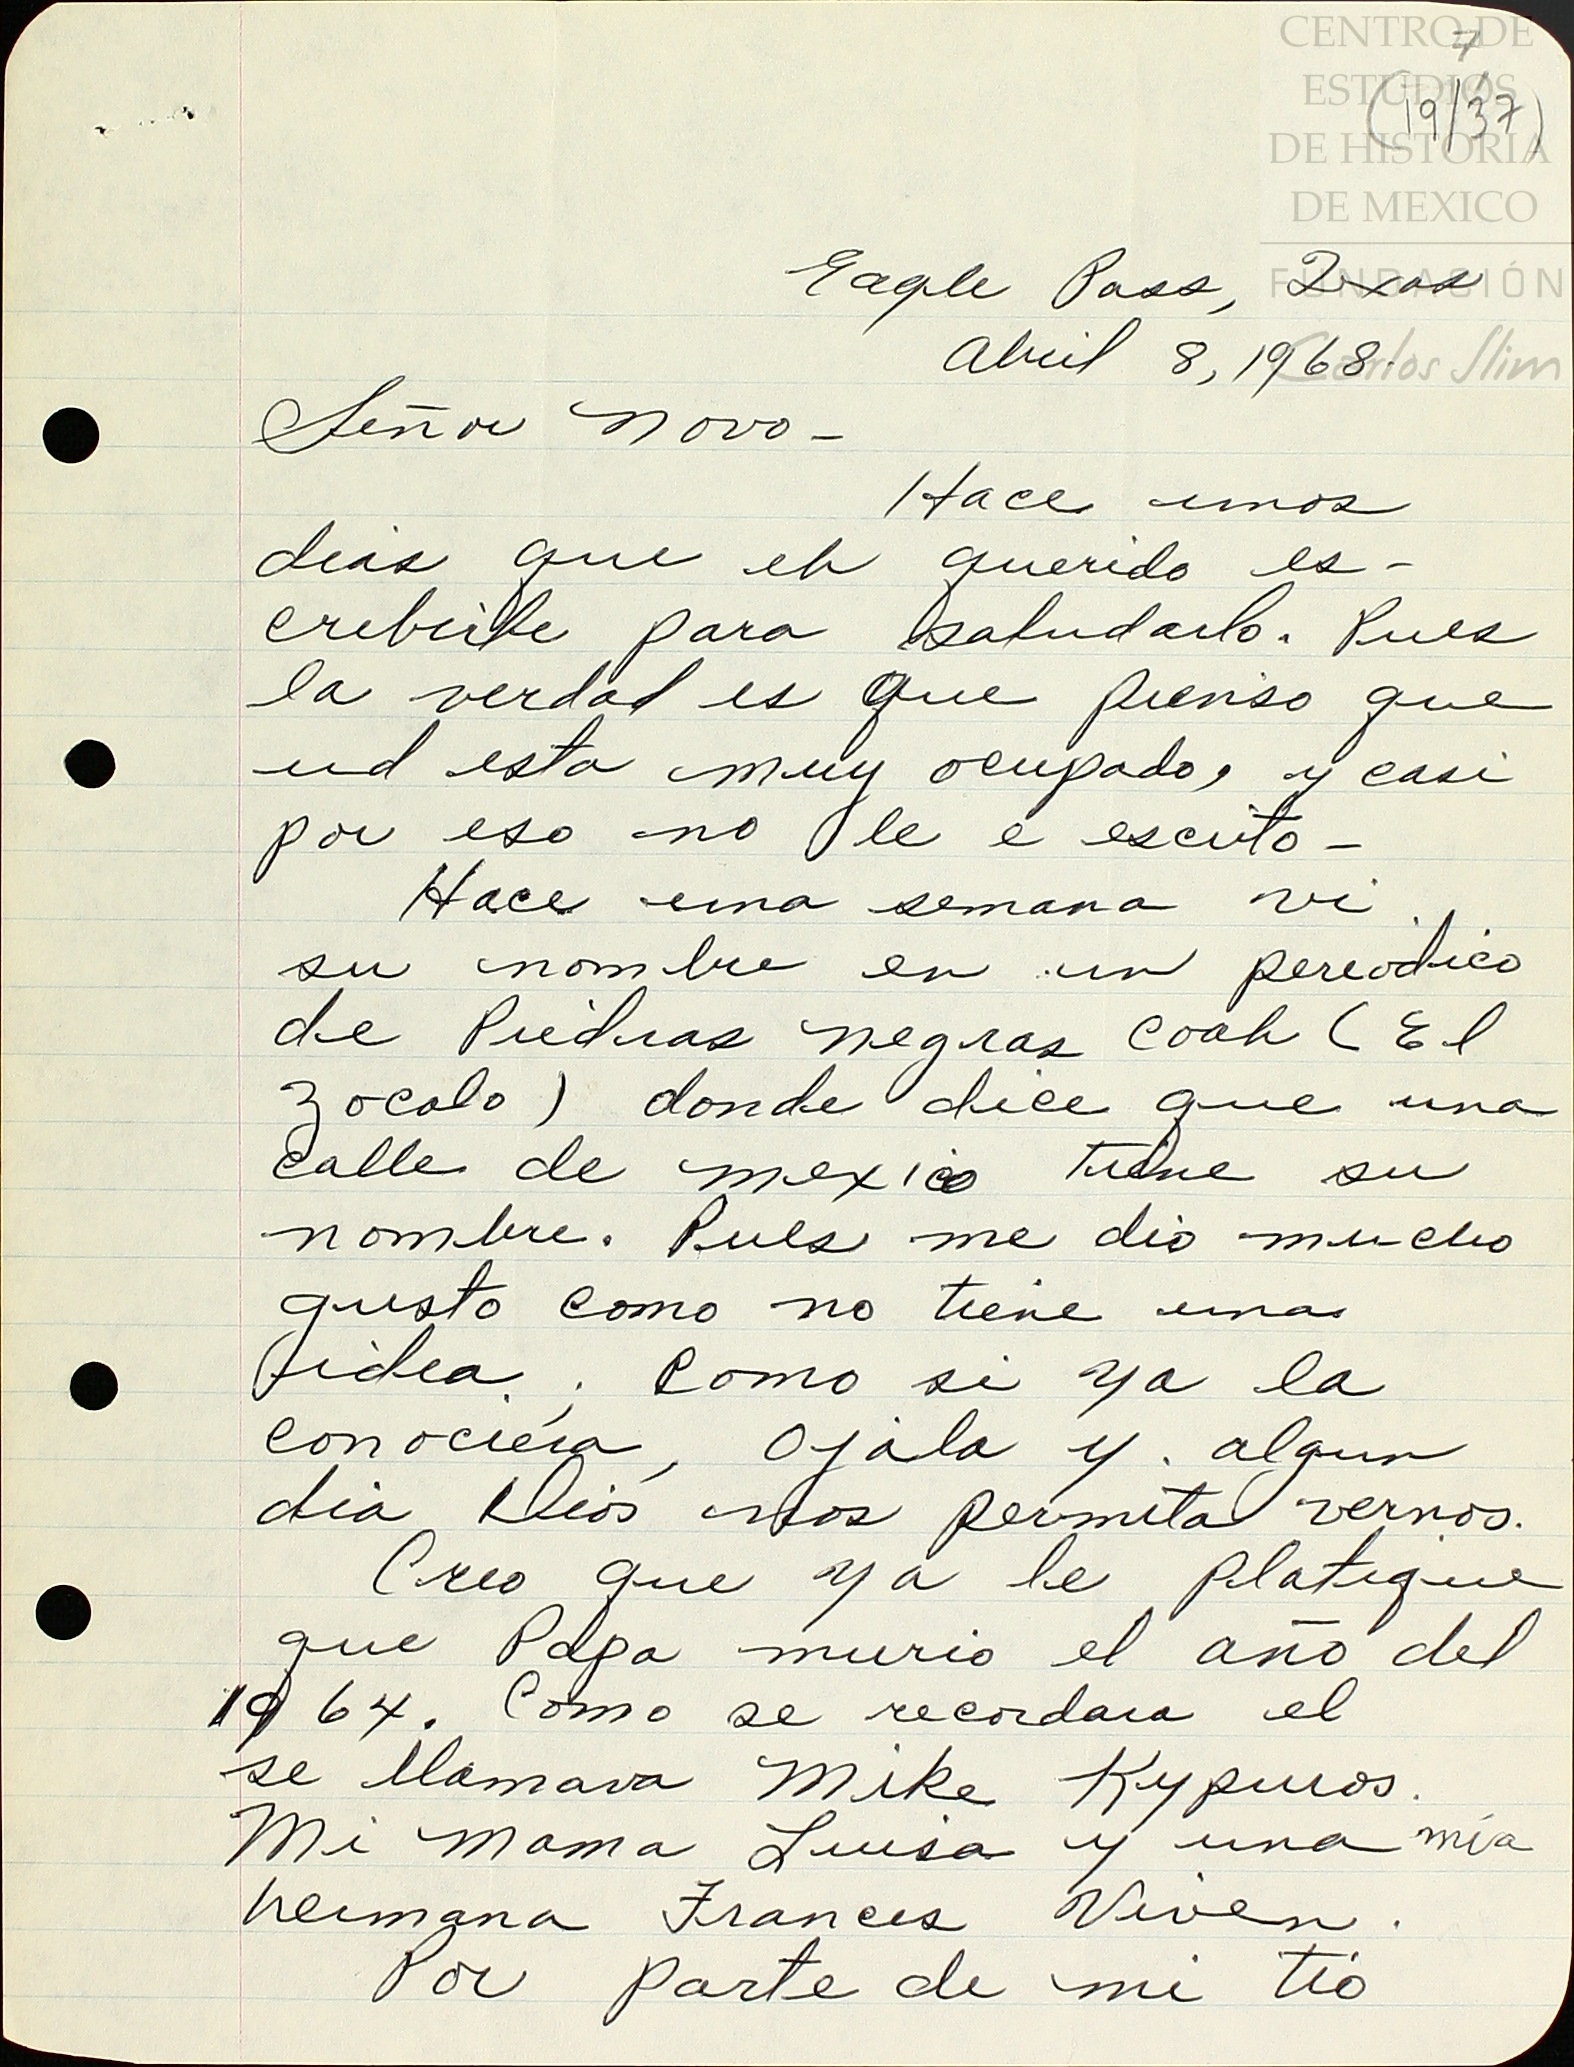 CENTRO DE
ESTUDIOS
DE HISTORIA
DE MEXICO
FUNDACIÓN
Carlos Slim
7
(19/37)
Eagle Pass, Texas
Abril 8, 1968.
Señor Novo -
Hace unos
dias que eh querido es-
cribirle para saludarlo. Pues
la verdad es que pienso que
ud esta muy ocupado, y casi
por eso no le e escrito -
Hace una semana vi
su nombre en un periodico
de Piedras Negras Coah (El
Zocalo) donde dice que una
calle de Mexico tiene su
nombre. Pues me dio mucho
gusto como no tiene una
idea. Como si ya la
conociera, Ojala y algun
dia Dios nos permita vernos.
Creo que ya le platique
que Papa murio el año del
1964. Como se recordara el
se llamava Mike Kypuros.
Mi Mama Luisa y una mía
hermana Frances Viven.
Por parte de mi tio